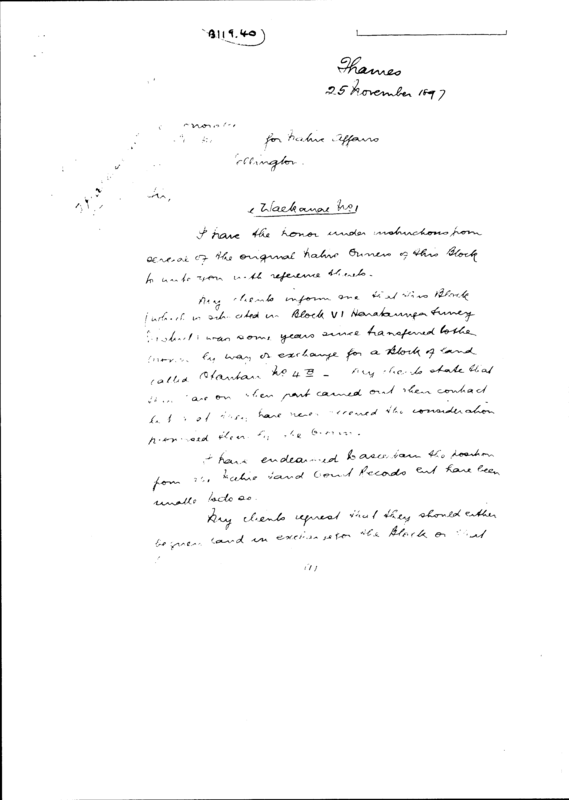 B119.40
Thames
25 November 1897
for Native Affairs
Wellington.
Sir,
Waekanae No 1
I have the honor under instructions from
several of the original Native Owners of this Block
to write you with reference thereto.
My clients inform me that this Block
(which is situated in Block VI Harataunga Survey
District) was some years since transferred to the
Crown by way of exchange for a Block of land
called No 4 - My clients state that
on their part carried out their contract
but that they have never received the consideration
promised them by the Crown.
I have endeavoured to ascertain the position
from the Native Land Court Records but have been
unable to do so.
My clients request that they should either
be given land in exchange for the Block or that
(1)